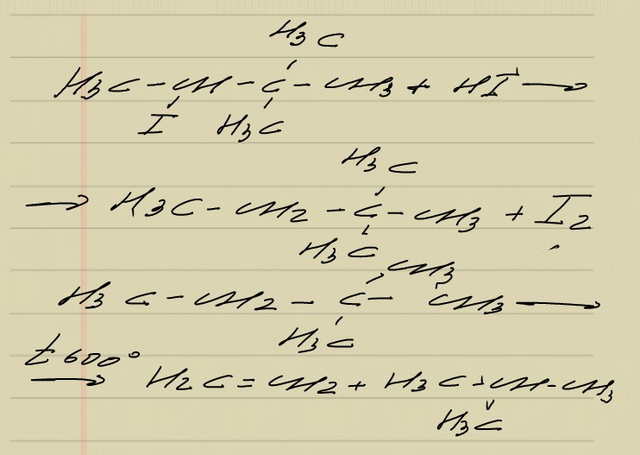 H3C
H3C - CH - C - CH3 + HI →
I H3C
H3C
→ H3C - CH2 - C - CH3 + I2
H3C CH3
H3C - CH2 - C - CH3 →
H3C
t 600°
→ H2C = CH2 + H3C - CH - CH3
H3C